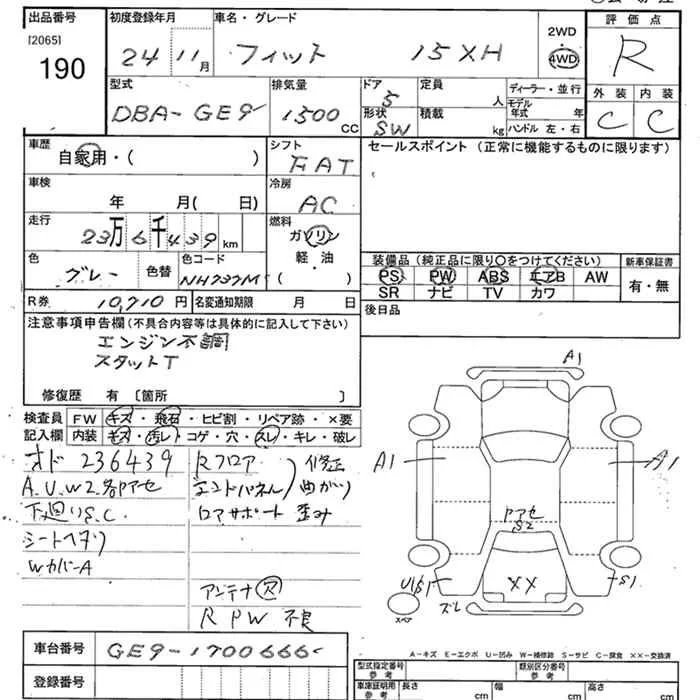 出品番号 初度登録年月 車名・グレード 評価点
[2065]
190 24 11月 フィット 15XH 2WD 4WD R
型式 排気量 ドア 定員 ディーラー・並行 外装 内装
DBA-GE9 1500cc 5 人 モデル年式 年 C C
形状 積載
SW kg ハンドル 左・右
車歴 シフト セールスポイント (正常に機能するものに限ります)
自家用・( ) FAT
車検 冷房
年 月( 日) AC
走行 燃料
23万6千439km ガソリン
色 色替 色コード 軽・油
グレー NH737M ( )
装備品(純正品に限り○をつけてください) 新車保証書
PS PW ABS エアB AW 有・無
SR ナビ TV カワ
R券 10,710円 名変通知期限 月 日
後日品
注意事項申告欄(不具合内容等は具体的に記入して下さい)
エンジン不調
スタットT
修復歴 有 〔箇所 〕
検査員 FW キズ・飛石・ヒビ割・リペア跡・×要
記入欄 内装 キズ・汚レ・コゲ・穴・スレ・キレ・破レ
オド 236439
A.U.W2.各アセ
下廻りS.C
シートヘタリ
WカバーA
Rフロア
エンドパネル
ロアサポート
修正
曲がり
歪み
アンテナ欠
R PW 不良
A1
A1 A1
Pアセ
S2
××
S1
ズレ
スペア
A-キズ E-エクボ U-凹み W-補修跡 S-サビ C-腐食 ××-交換済
車台番号 GE9-1700666
登録番号
型式指定番号 参考 類別区分番号 参考
車庫証明用 参考 長さ cm 幅 cm 高さ cm